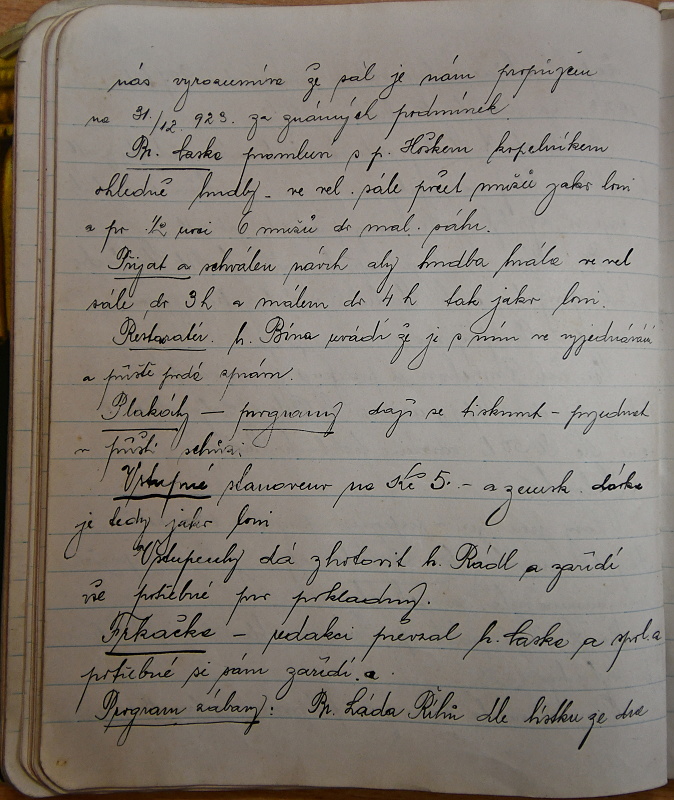 nás vyrozumívá že sál je nám propůjčen
na 31./12. 923. za známých podmínek.
Br. Laska promluví s p. Hoškem kapelníkem
ohledně hudby - ve vel. sále počet mužů jako loni
a po 1/2 noci 6 mužů do mal. sálu.
Přijat a schválen návrh aby hudba hrála ve vel
sále do 3 h a málem do 4 h tak jako loni.
Restauratér. h. Bína uvádí že je s ním ve vyjednávání
a příště podá zprávu.
Plakáty — programy dají se tisknout - projednat
v příští schůzi.
Vstupné stanoveno na Kč 5.- a zemsk. dávka
je tedy jako loni
Vstupenky dá zhotovit h. Rádl a zařídí
vše potřebné pro pokladny.
Frkačka — redakci převzal h. Laska a spol. a
potřebné si sám zařídí.
Program zábavy: Br. Láda Říhů dle lístku ze dne